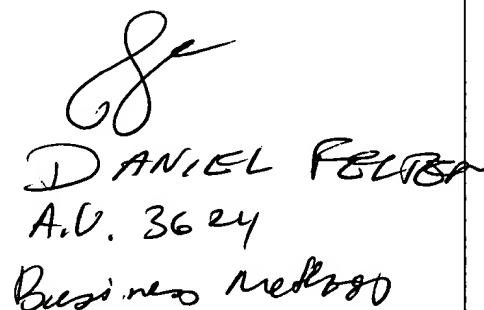 DANIEL FELBER
A.U. 3624
Business Method